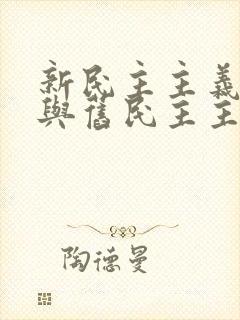 新民主主義
與舊民主主
陶德曼